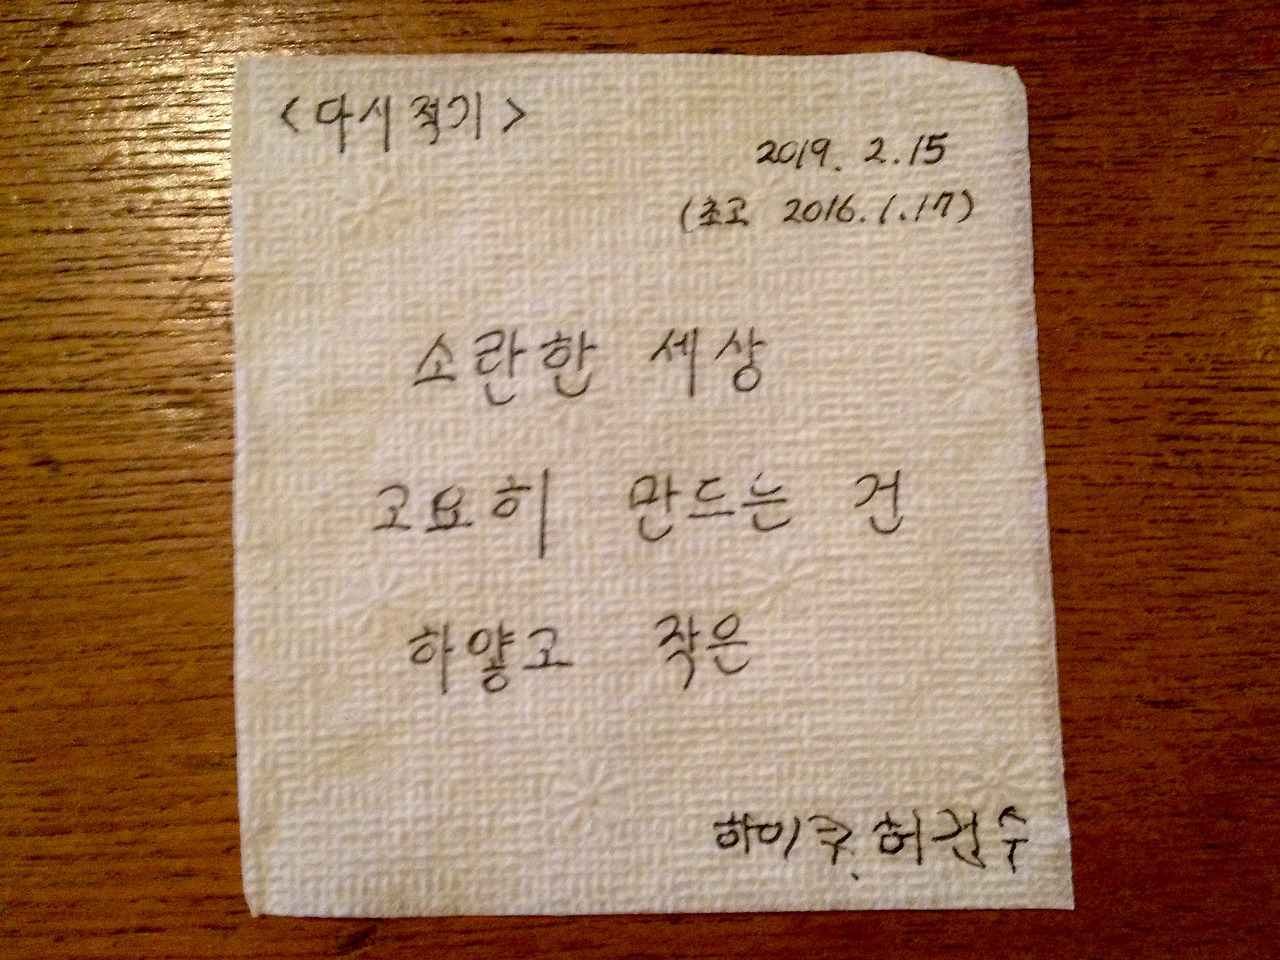 <다시 적기>
2019. 2.15
(초고 2016.1.17)
소란한 세상
고요히 만드는 건
하얗고 작은
하이쿠. 허건수